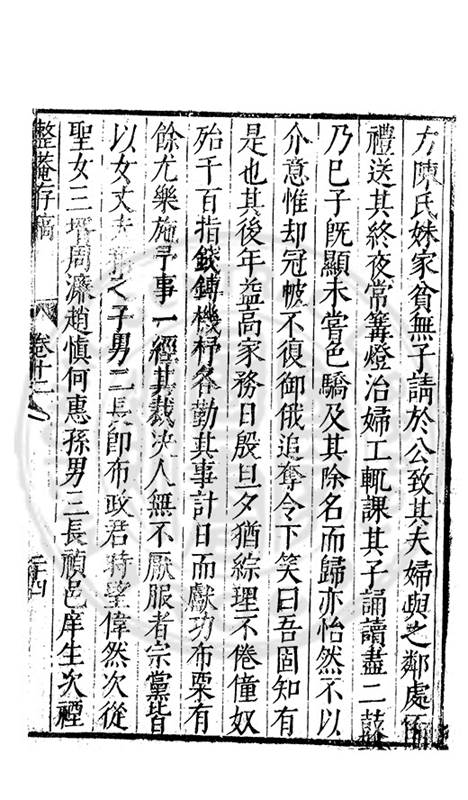 方陳氏妹家貧無子請於公致其夫婦與之鄰處
禮送其終夜常篝燈治婦工輒課其子誦讀盡二鼓
乃已子既顯未嘗色驕及其除名而歸亦怡然不以
介意惟却冠帔不復御俄追奪令下笑曰吾固知有
是也其後年益高家務日殷旦夕猶綜理不倦僮奴
殆千百指錢鎛機杼各勤其事計日而獻功布粟有
餘尤樂施予事一經其裁决人無不厭服者宗黨皆
以女丈夫稱之子男二長即布政君時望偉然次從
聖女三壻周濂趙愼何惠孫男三長禎邑庠生次禋
整菴存稿
卷十二